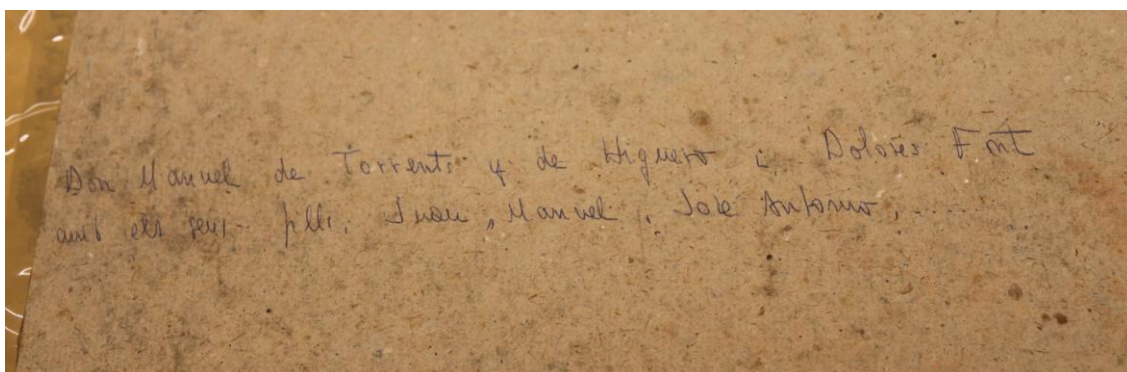 Don Manuel de Torrents y de Higuero i Dolores Font
amb els seus fills. Juan, Manuel, Jose Antonio, ......